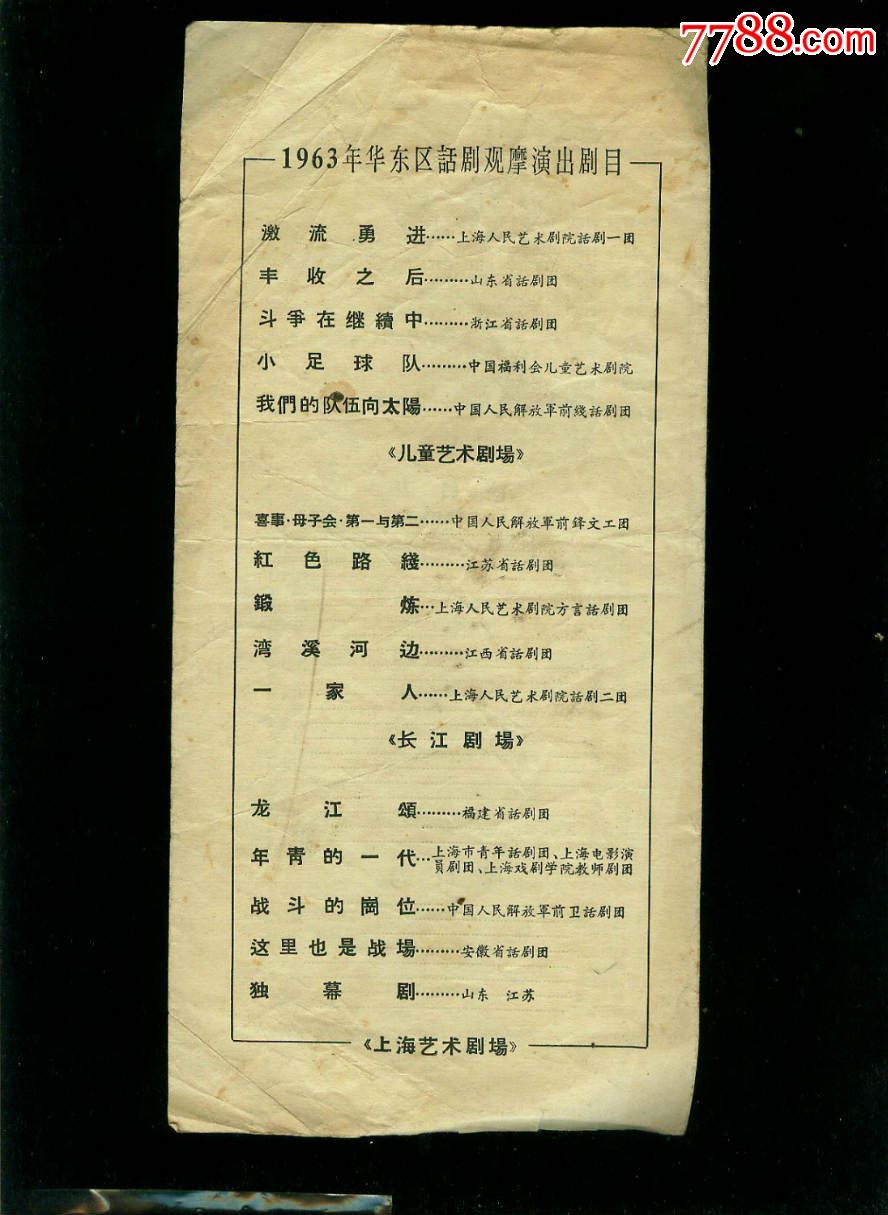 7788.com
1963年华东区話剧观摩演出剧目
激流勇进……上海人民艺术剧院話剧一团
丰收之后………山东省話剧团
斗爭在继續中………浙江省話剧团
小足球队………中国福利会儿童艺术剧院
我們的队伍向太陽……中国人民解放軍前綫話剧团
《儿童艺术剧場》
喜事·母子会·第一与第二……中国人民解放軍前鋒文工团
紅色路綫………江苏省話剧团
鍛炼…上海人民艺术剧院方言話剧团
湾溪河边………江西省話剧团
一家人……上海人民艺术剧院話剧二团
《长江剧場》
龙江頌………福建省話剧团
年青的一代…上海市青年話剧团、上海电影演
員剧团、上海戏剧学院教师剧团
战斗的崗位……中国人民解放軍前卫話剧团
这里也是战場………安徽省話剧团
独幕剧………山东 江苏
《上海艺术剧場》